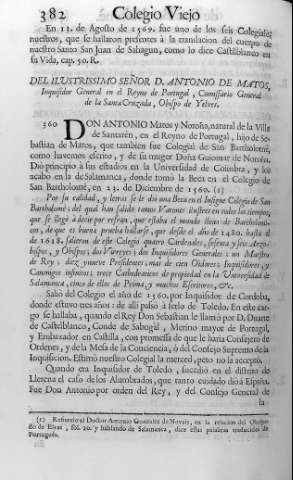 382 Colegio Viejo
En 13. de Agosto de 1569. fue uno de los seis Colegiales
nuestros, que se hallaron presentes à la translacion del cuerpo de
nuestro Santo San Juan de Sahagun, como lo dice Castilblanco en
su Vida, cap. 50. R.
DEL ILUSTRISSIMO SEÑOR D. ANTONIO DE MATOS,
Inquisidor General en el Reyno de Portugal, Comissario General
de la Santa Cruzada, Obispo de Yelves.
360 DON ANTONIO Matos y Noroña, natural de la Villa
de Santarén, en el Reyno de Portugal, hijo de Se-
bastian de Matos, que tambien fue Colegial de San Bartholomé,
como havemos escrito, y de su muger Doña Guiomar de Noroña.
Diò principio à sus estudios en la Universidad de Coimbra, y los
acabò en la de Salamanca, donde tomò la Beca en el Colegio de
San Bartholomé, en 23. de Diciembre de 1560. (1)
Por su calidad, y letras se le diò una Beca en el Insigne Colegio de San
Bartholomé: del qual han salido tantos Varones ilustres en todos los tiempos,
que se llegò à decir por refran, que estaba el mundo lleno de Bartholo-
micos, de que es buena prueba hallarse, que desde el año de 1480. hasta el
de 1618. salieron de este Colegio quatro Cardenales, sesenta y seis Arzo-
bispos, y Obispos; dos Virreyes; dos Inquisidores Generales: un Maestro
de Rey; diez y nueve Presidentes; mas de cien Oidores; Inquisidores, y
Canonigos infinitos; trece Cathedraticos de propiedad en la Universidad de
Salamanca, cinco de ellos de Prima, y muchos Escritores, &c.
Saliò del Colegio el año de 1560. por Inquisidor de Cordoba,
donde estuvo tres años: de alli passò à serlo de Toledo. En este car-
go se hallaba, quando el Rey Don Sebastian le llamò por D. Duarte
de Castelblanco, Conde de Sabugàl, Merino mayor de Portugal,
y Embaxador en Castilla, con promessa de que le haria Consejero de
Ordenes, y de la Mesa de la Conciencia, ò del Consejo Supremo de la
Inquisicion. Estimò nuestro Colegial la merced, pero no la acceptò.
Quando era Inquisidor de Toledo, sucediò en el distrito de
Llerena el caso de los Alumbrados, que tanto cuidado diò à España.
Fue Don Antonio por orden del Rey, y del Consejo General de
la
(1) Refiere el Doctor Antonio Gonzalez de Novais, en la relacion del Obispa-
do de Elvas, fol. 20. y hablando de Salamanca, dice estas palabras traducidas de
Portugués.